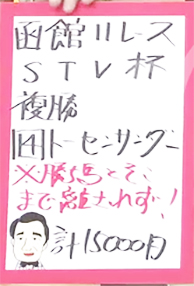 函館11レース
STV杯
複勝
回トーセンサンダー
※勝馬とぞ
まで離されず!
計15000円